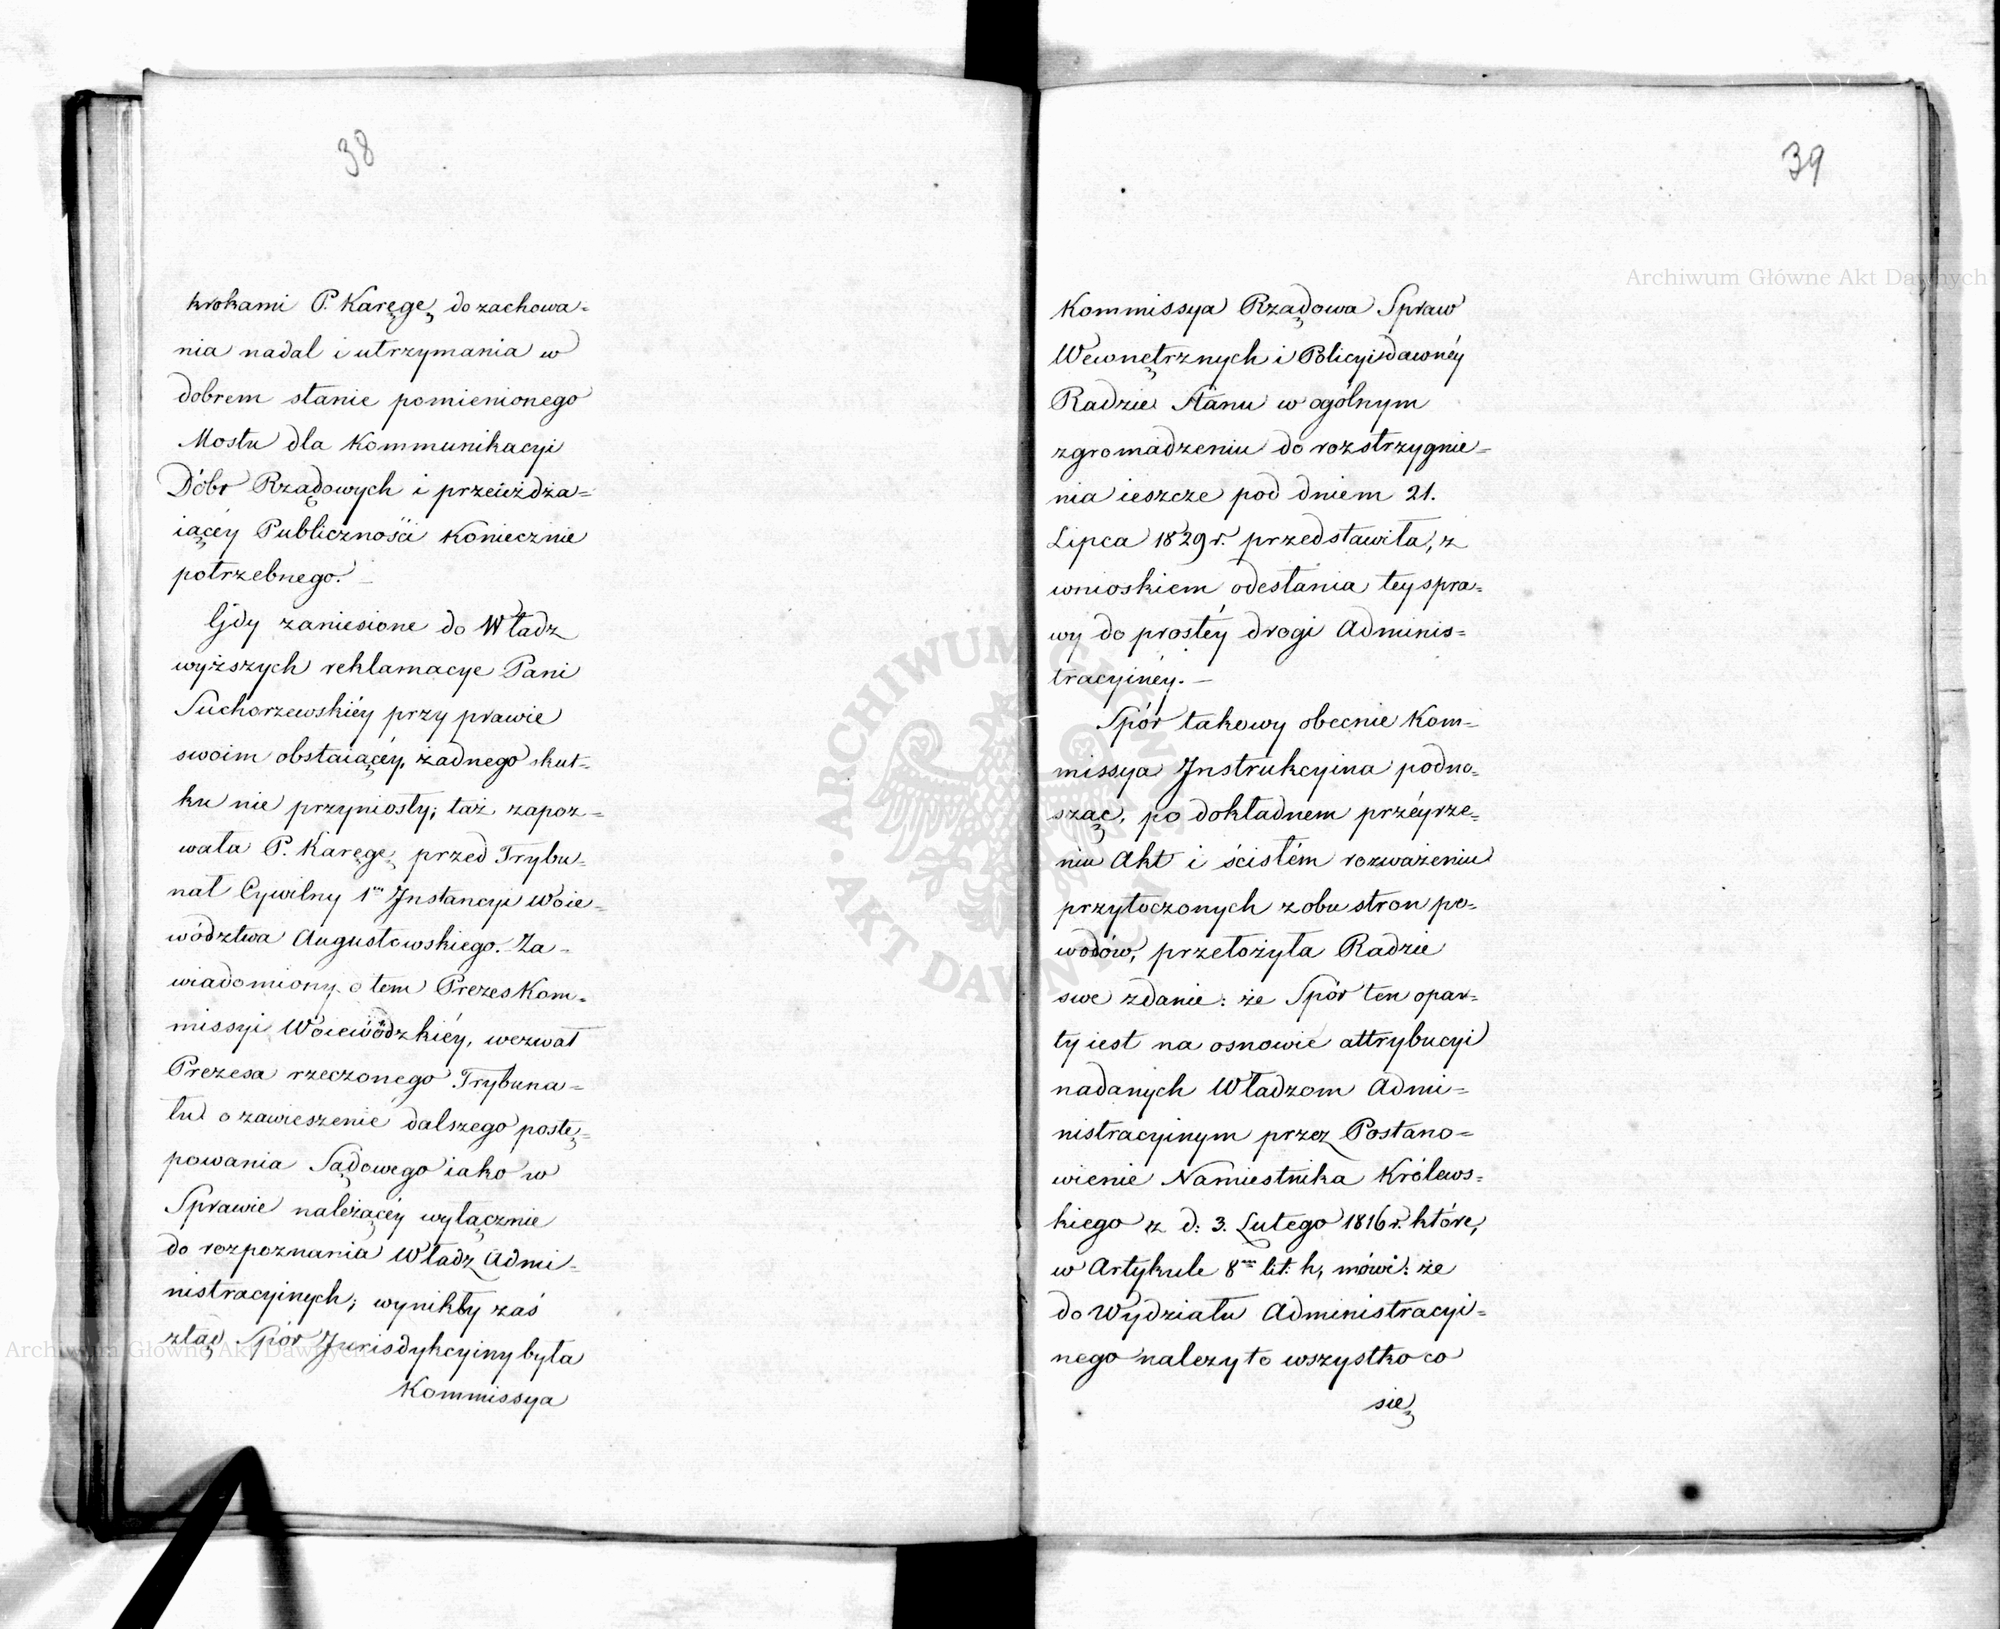 38
krokami P. Karęgę do zachowa=
nia nadal i utrzymania w
dobrem stanie pomienionego
Mostu dla Kommunikacyi
Dóbr Rządowych i przeieżdża=
iącéy Publiczności koniecznie
potrzebnego. —
Gdy zaniesione do Władz
wyższych reklamacye Pani
Suchorzewskiéy przy prawie
swoim obstaiącéy, żadnego skut=
ku nie przyniosły; taż zapoz=
wała P. Karęgę przed Trybu=
nał Cywilny 1ey Instancyi Woie=
wództwa Augustowskiego. Za=
wiadomiony o tem Prezes Kom=
missyi Woiewódzkiéy, wezwał
Prezesa rzeczonego Trybuna=
łu o zawieszenie dalszego postę=
powania Sądowego iako w
Sprawie należącéy wyłącznie
do rozpoznania Władz Admi=
nistracyinych; wynikły zaś
ztąd Spór Jurisdykcyiny była
Kommissya
39
Kommissya Rządowa Spraw
Wewnętrznych i Policyi dawnéy
Radzie Stanu w ogólnym
zgromadzeniu do rozstrzygnie=
nia ieszcze pod dniem 21.
Lipca 1829 r. przedstawiła, z
wnioskiem odesłania tey spra=
wy do prostéy drogi Adminis=
tracyinéy. —
Spór takowy obecnie Kom=
missya Instrukcyina podno=
sząc, po dokładnem przéyrze=
niu Akt i ścisłém rozważeniu
przytoczonych z obu stron po=
wodów, przełożyła Radzie
swe zdanie: że Spór ten opar=
ty iest na osnowie attrybucyi
nadanych Władzom Admi=
nistracyinym przez Postano=
wienie Namiestnika Królews=
kiego z d: 3. Lutego 1816 r. które,
w Artykule 8m lit: h, mówi: że
do Wydziału Administracyi=
nego należy to wszystko co
się
Archiwum Główne Akt Dawnych
Archiwum Główne Akt Dawnych
ARCHIWUM GŁÓWNE AKT DAWNYCH